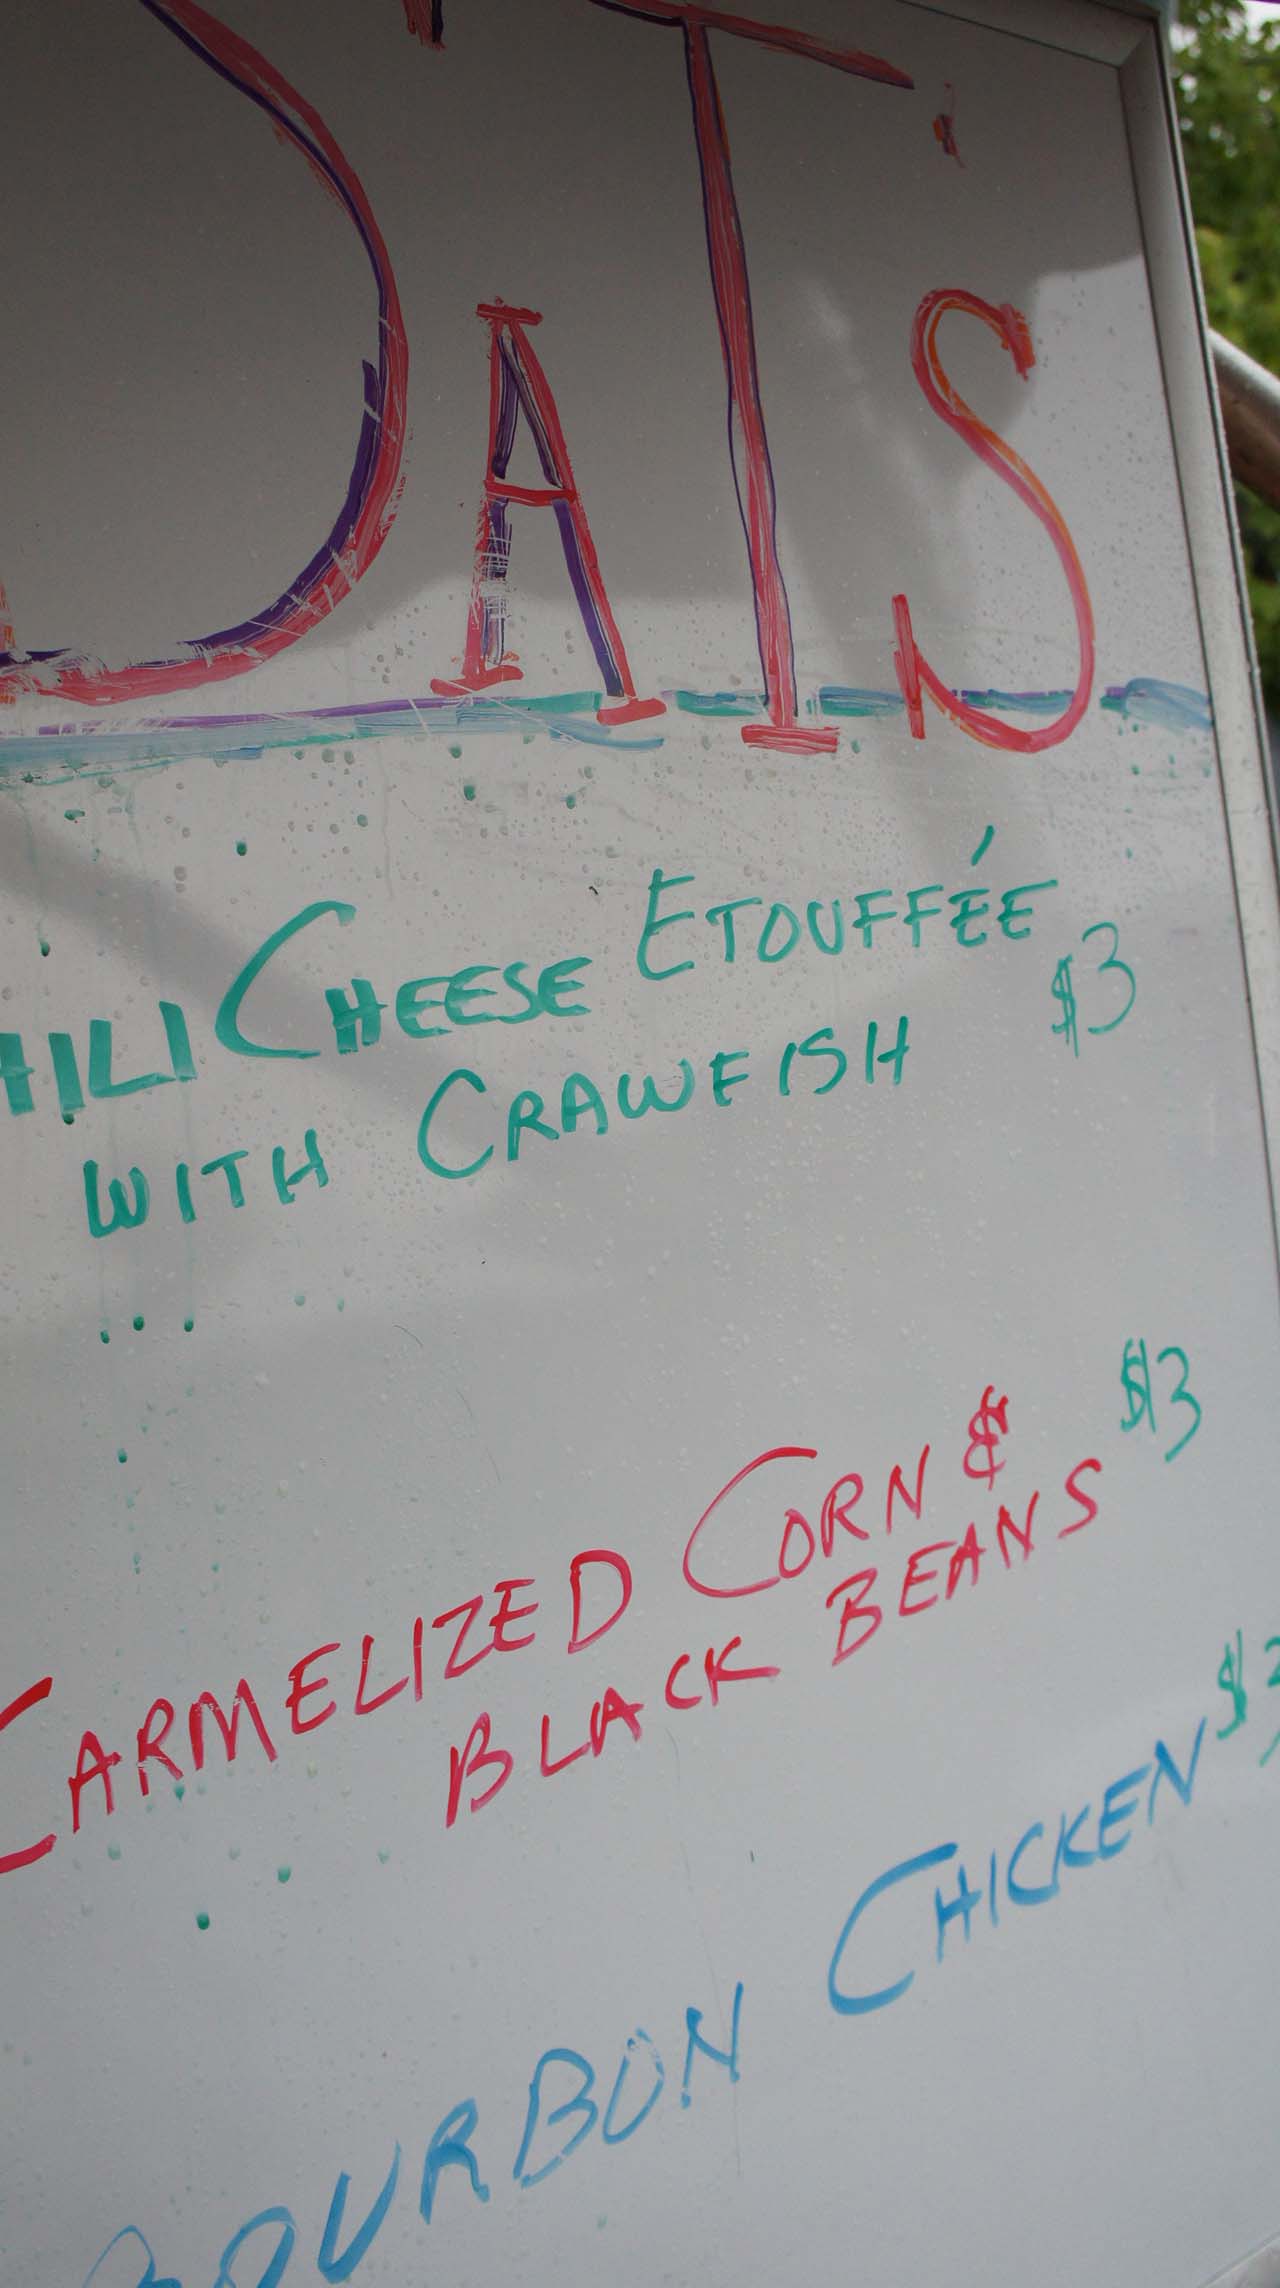 DAT'S
HILI CHEESE ETOUFFÉE
WITH CRAWFISH $3
CARMELIZED CORN &
BLACK BEANS $3
BOURBON CHICKEN $3